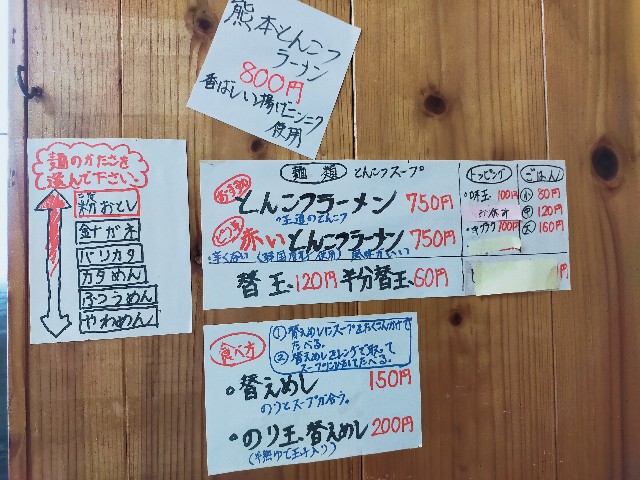 熊本とんこつ
ラーメン
800円
香ばしい揚げニンニク
使用
麺のかたさを
選んで下さい。
粉おとし
針ガネ
バリカタ
カタめん
ふつうめん
やわめん
麺類 とんこつスープ
とんこつラーメン 750円
王道のとんこつ
赤いとんこつラーメン 750円
辛くない
替玉 120円 半分替玉 60円
トッピング
味玉 100円
キクラゲ 100円
ごはん
小 80円
中 120円
大 160円
円
食べ方
① 替えめしにスープをたくさんかけて
たべる。
② 替えめしをレンゲで取って
スープにひたしてたべる。
替えめし 150円
のりとスープが合う。
のり玉、替えめし 200円
(半熟ゆで玉子入り)